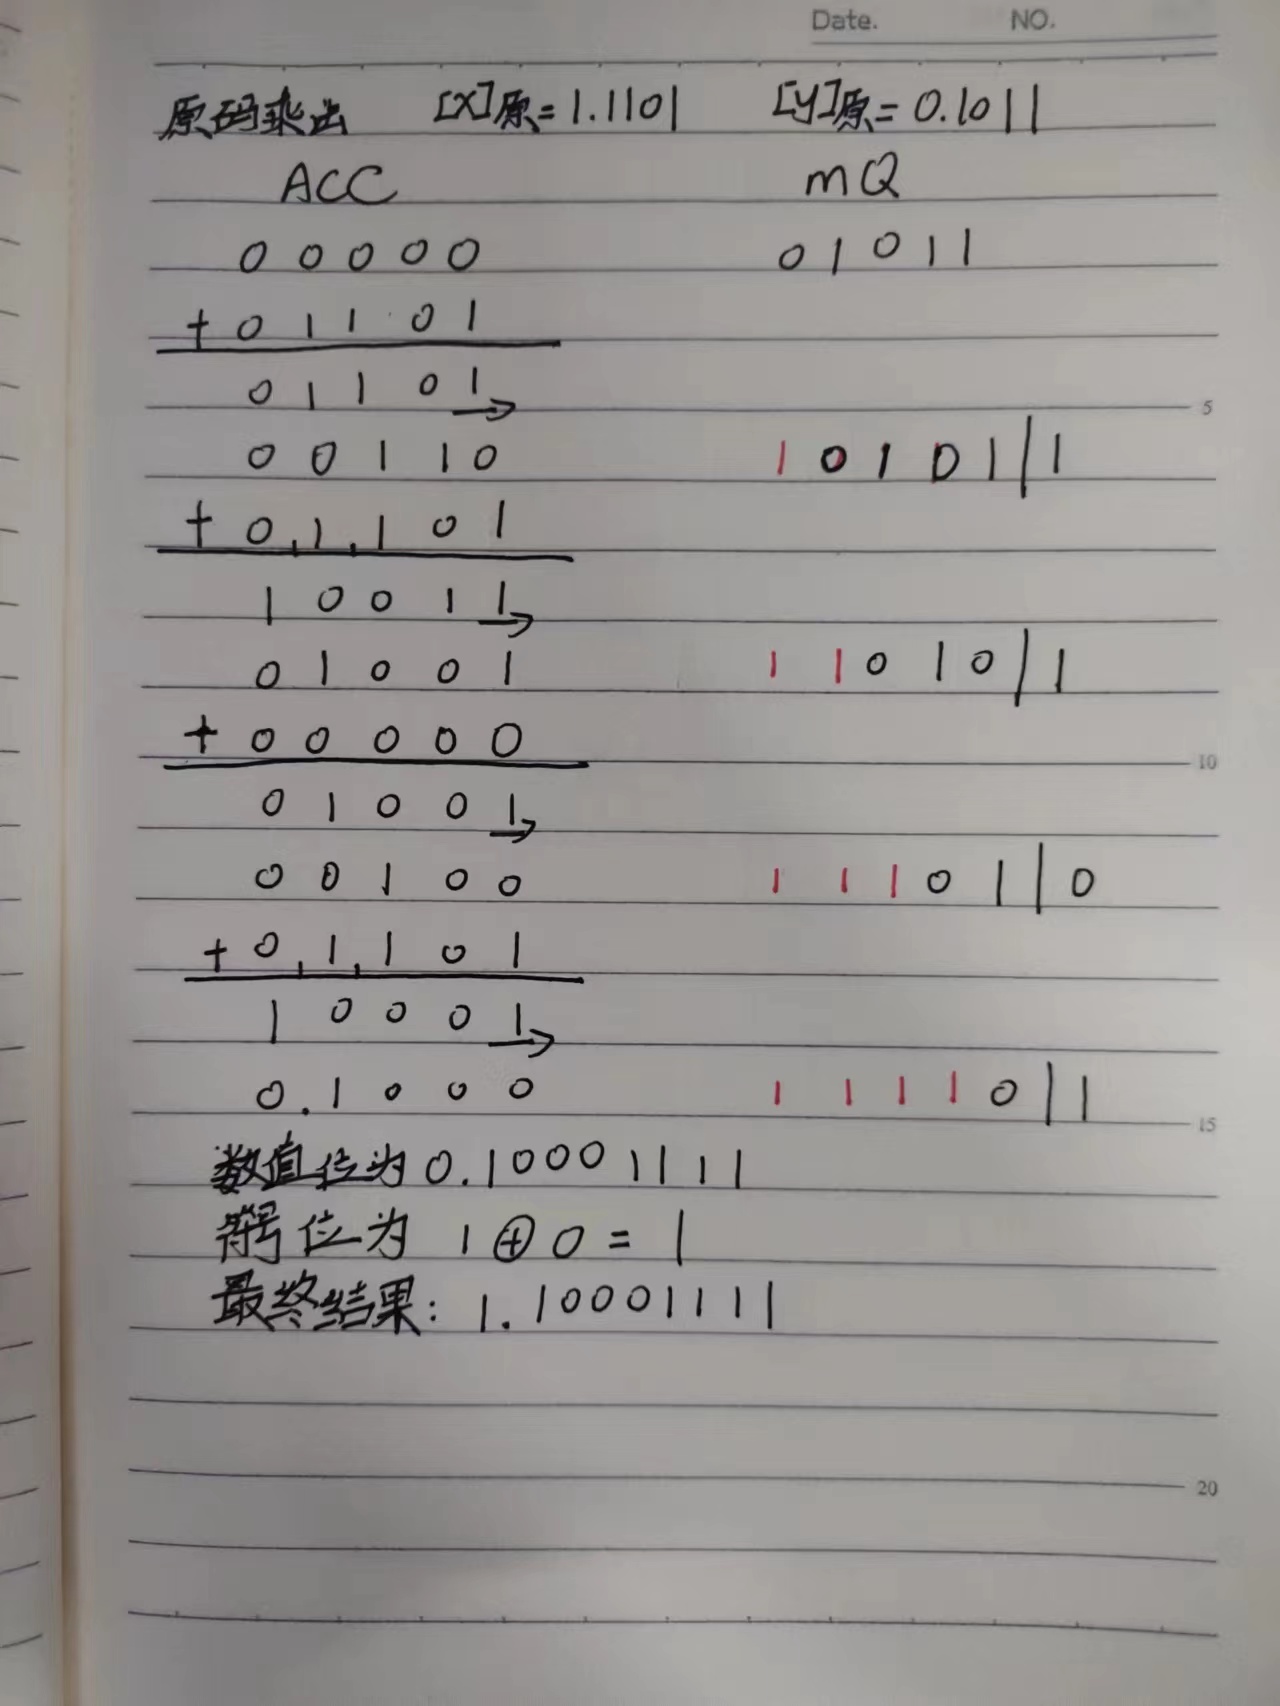 Date. NO.
原码乘法 [X]原=1.1101 [y]原=0.1011
ACC mQ
0 0 0 0 0 0 1 0 1 1
+ 0 1 1 0 1
0 1 1 0 1 →
5
0 0 1 1 0 1 0 1 0 1 | 1
+ 0 1 1 0 1
1 0 0 1 1 →
0 1 0 0 1 1 1 0 1 0 | 1
+ 0 0 0 0 0
10
0 1 0 0 1 →
0 0 1 0 0 1 1 1 0 1 | 0
+ 0 1 1 0 1
1 0 0 0 1 →
0.1 0 0 0 1 1 1 1 0 | 1
15
数值位为 0.10001111
符号位为 1⊕0=1
最终结果: 1.10001111
20